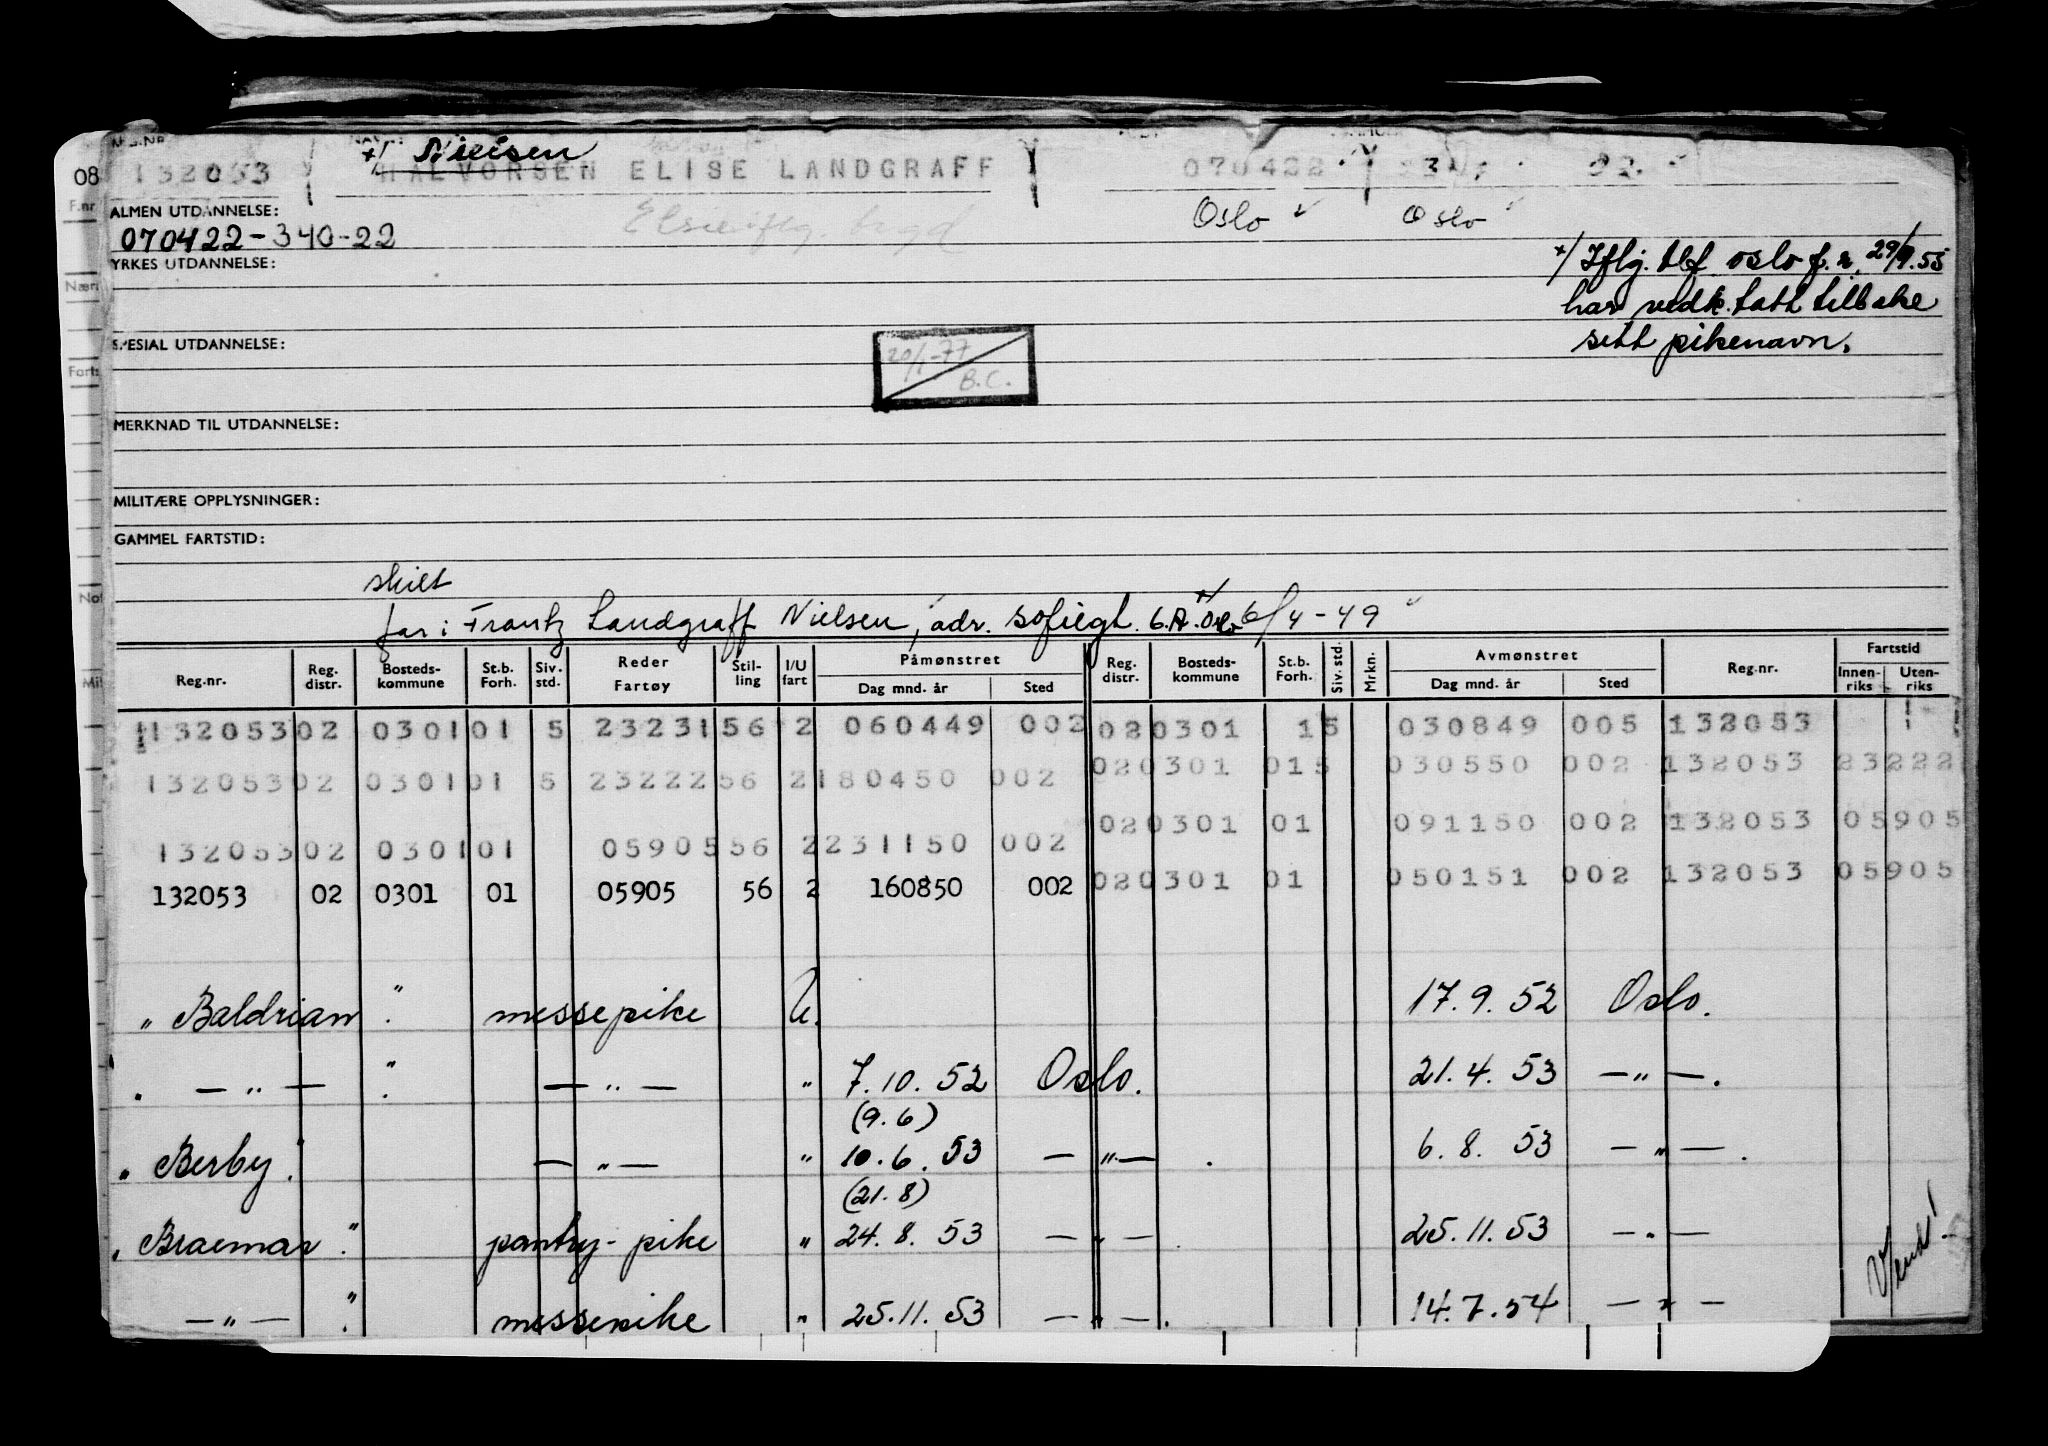 +/ Nielsen
08 132053 HALVORSEN ELISE LANDGRAFF 070422
F.nr ALMEN UTDANNELSE: Oslo Oslo
070422-340-22
YRKES UTDANNELSE:
+/ Iflg. tlf. Oslo f.r. 29/9.55
har vedk. tatt tilbake
sitt pikenavn.
SPESIAL UTDANNELSE:
20/1-77
B.C.
MERKNAD TIL UTDANNELSE:
MILITÆRE OPPLYSNINGER:
GAMMEL FARTSTID:
skilt
far: Frantz Landgraff Nielsen, adr. Sofiegt. 6.A. Oslo 6/4-49
Reg.nr. Reg. distr. Bosteds-kommune St.b. Forh. Siv. std. Reder Fartøy Stil-ling I/U fart Påmønstret Dag mnd. år Sted Reg. distr. Bosteds-kommune St.b. Forh. Siv. std. Mrkn. Avmønstret Dag mnd. år Sted Reg.nr. Fartstid Innen-riks Uten-riks
132053 02 0301 01 5 23231 56 2 060449 002 02 0301 1 5 030849 005 132053
132053 02 0301 01 5 23222 56 2 180450 002 02 0301 01 5 030550 002 132053 23222
132053 02 0301 01 05905 56 2 231150 002 02 0301 01 091150 002 132053 05905
132053 02 0301 01 05905 56 2 160850 002 02 0301 01 050151 002 132053 05905
" Baldrian " messepike U. 17.9.52 Oslo.
— " — " — " — " 7.10.52 Oslo. 21.4.53 — " —.
(9.6)
" Berby " — " — " 10.6.53 — " —. 6.8.53 — " —.
(21.8)
" Braemar " pantry-pike " 24.8.53 — " —. 25.11.53 — " —
— " — " messepike " 25.11.53 — " —. 14.7.54 — " —
Vend!